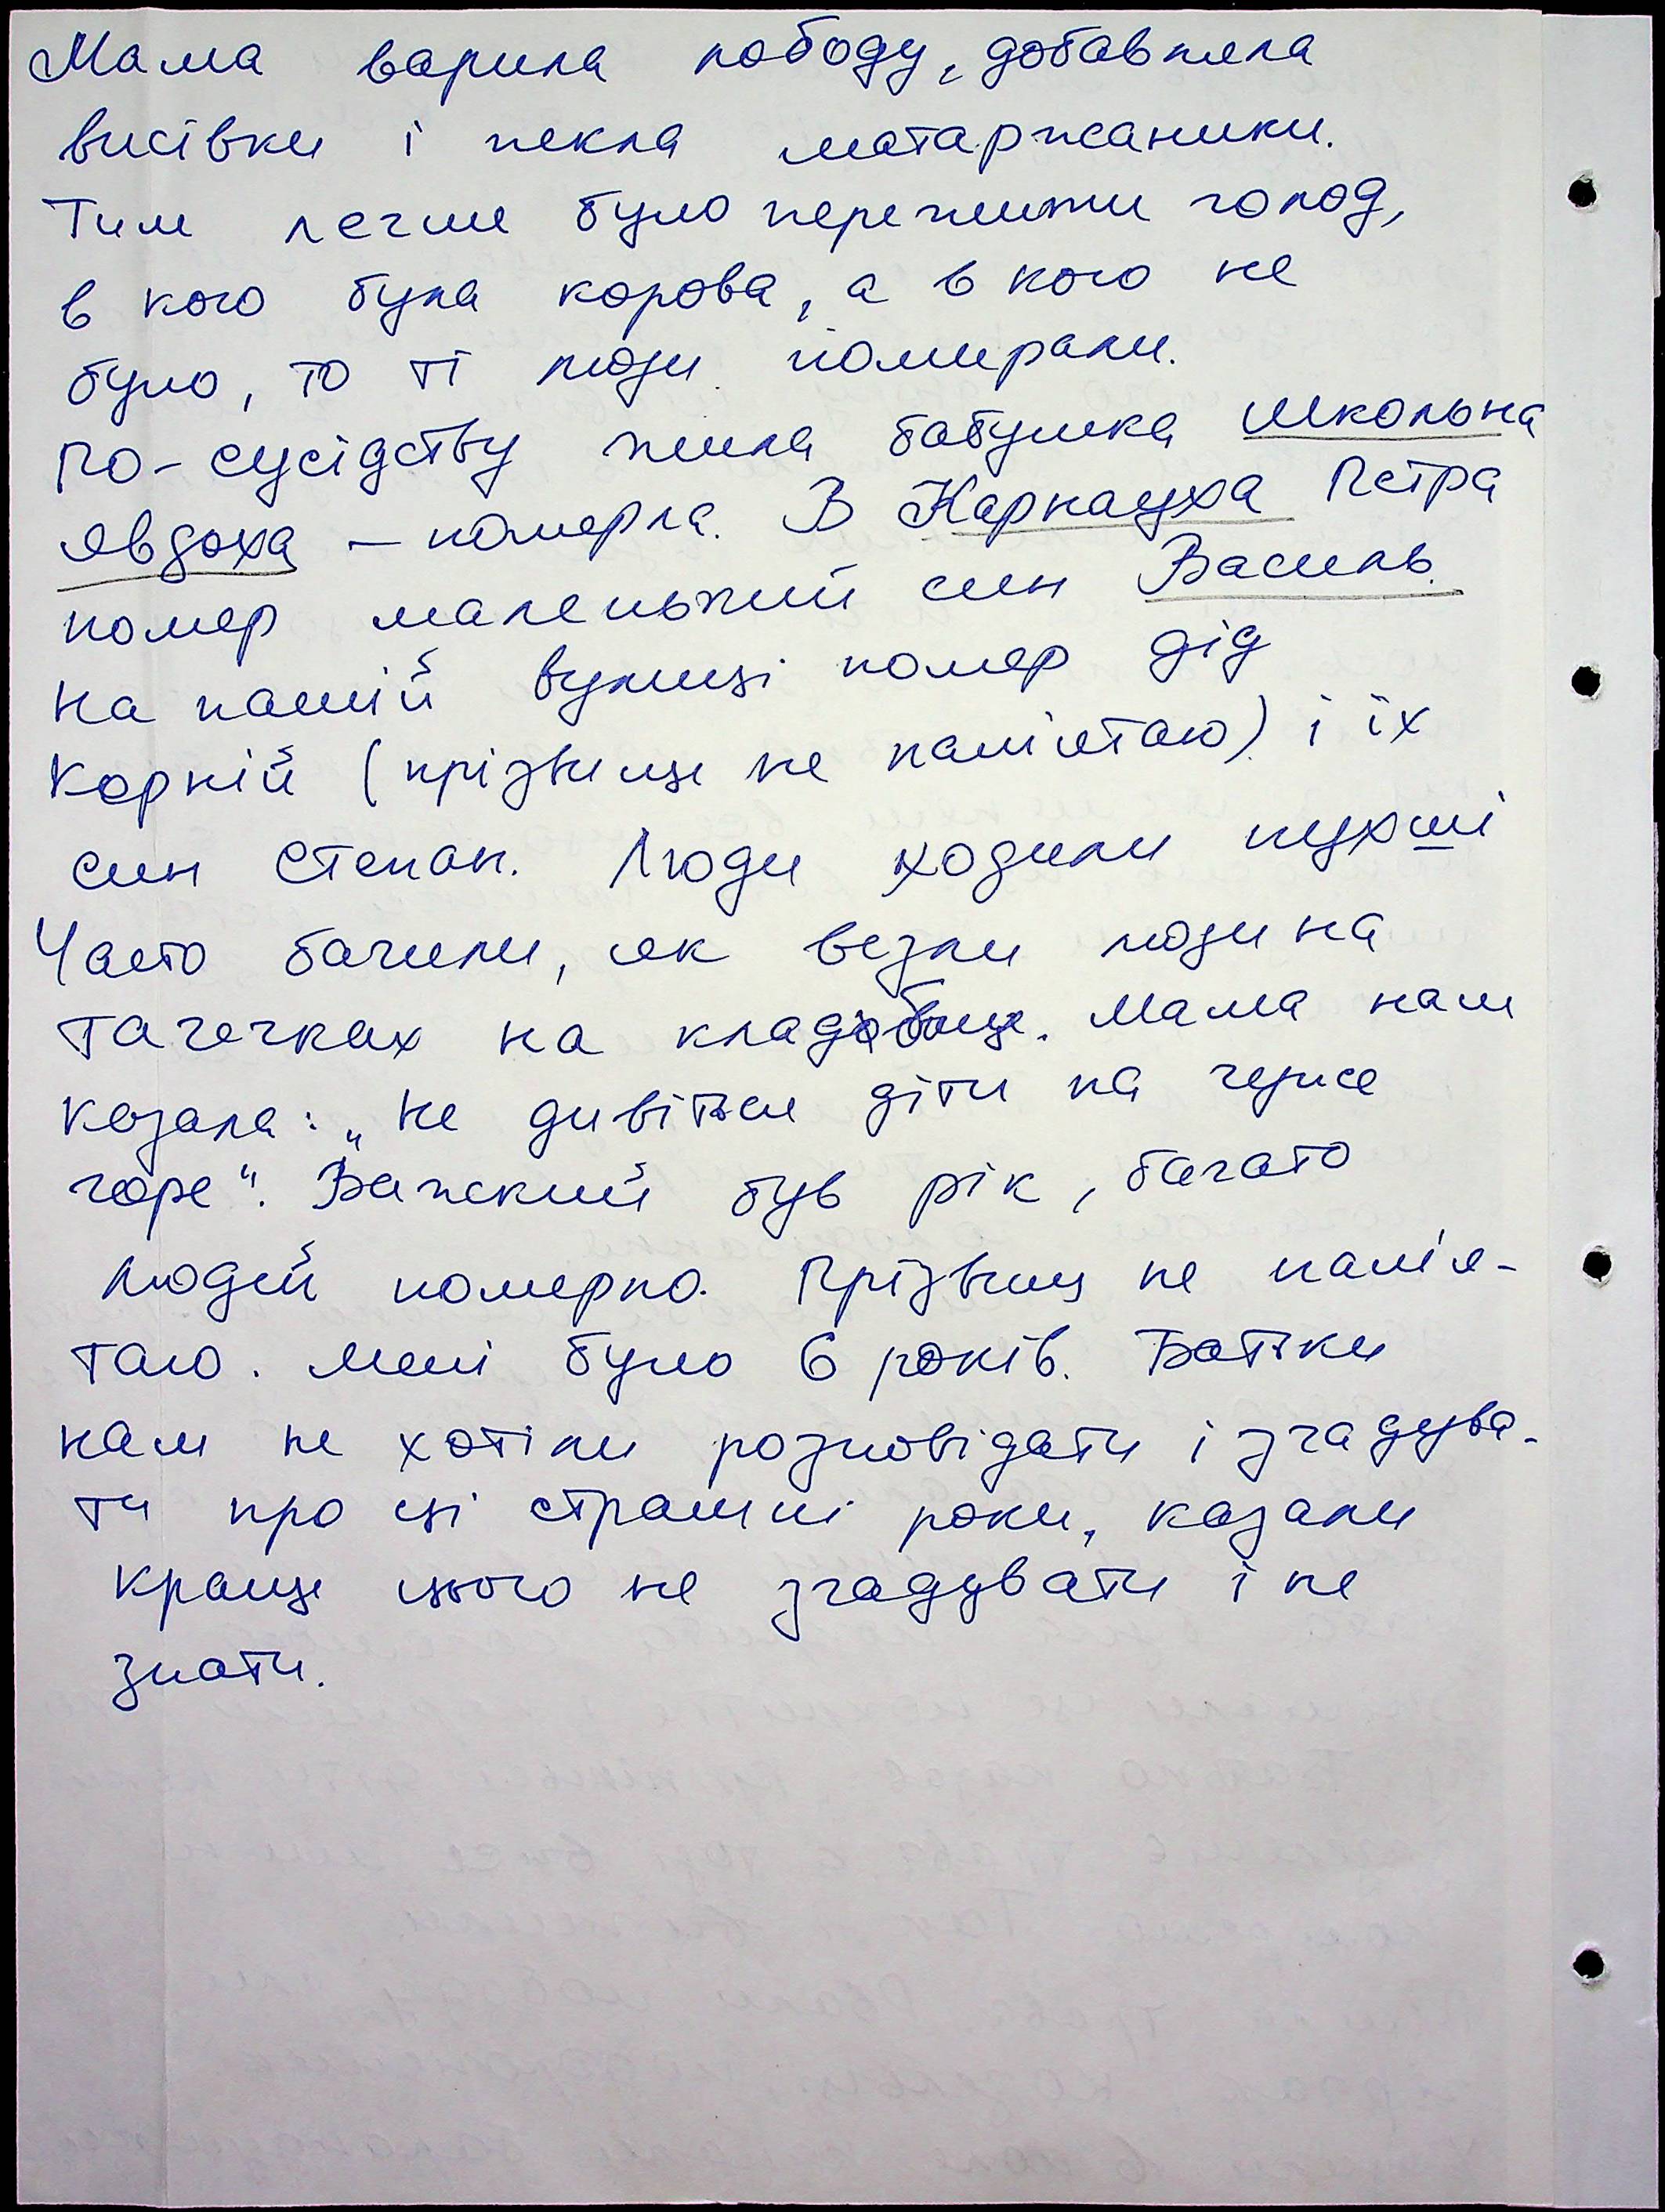 Мама варила лободу, добавляла
висівки і пекла матаржаники.
Тим легше було пережити голод,
в кого була корова, а в кого не
було, то ті люди помирали.
По-сусідству жила бабушка Школьна
Явдоха – померла. В Карнауха Петра
помер маленький син Василь.
На нашій вулиці помер дід
Корній (прізвище не пам'ятаю) і їх
син Степан. Люди ходили пухші
Часто бачили, як везли людина
тачечках на кладобище. Мама нам
казала: „Не дивіться діти на чуже
горе". Важкий був рік, багато
людей померло. Прізвищ не пам'я-
таю. Мені було 6 років. Батьки
нам не хотіли розповідати і згадува-
ти про ці страшні роки, казали
краще цього не згадувати і не
знати.